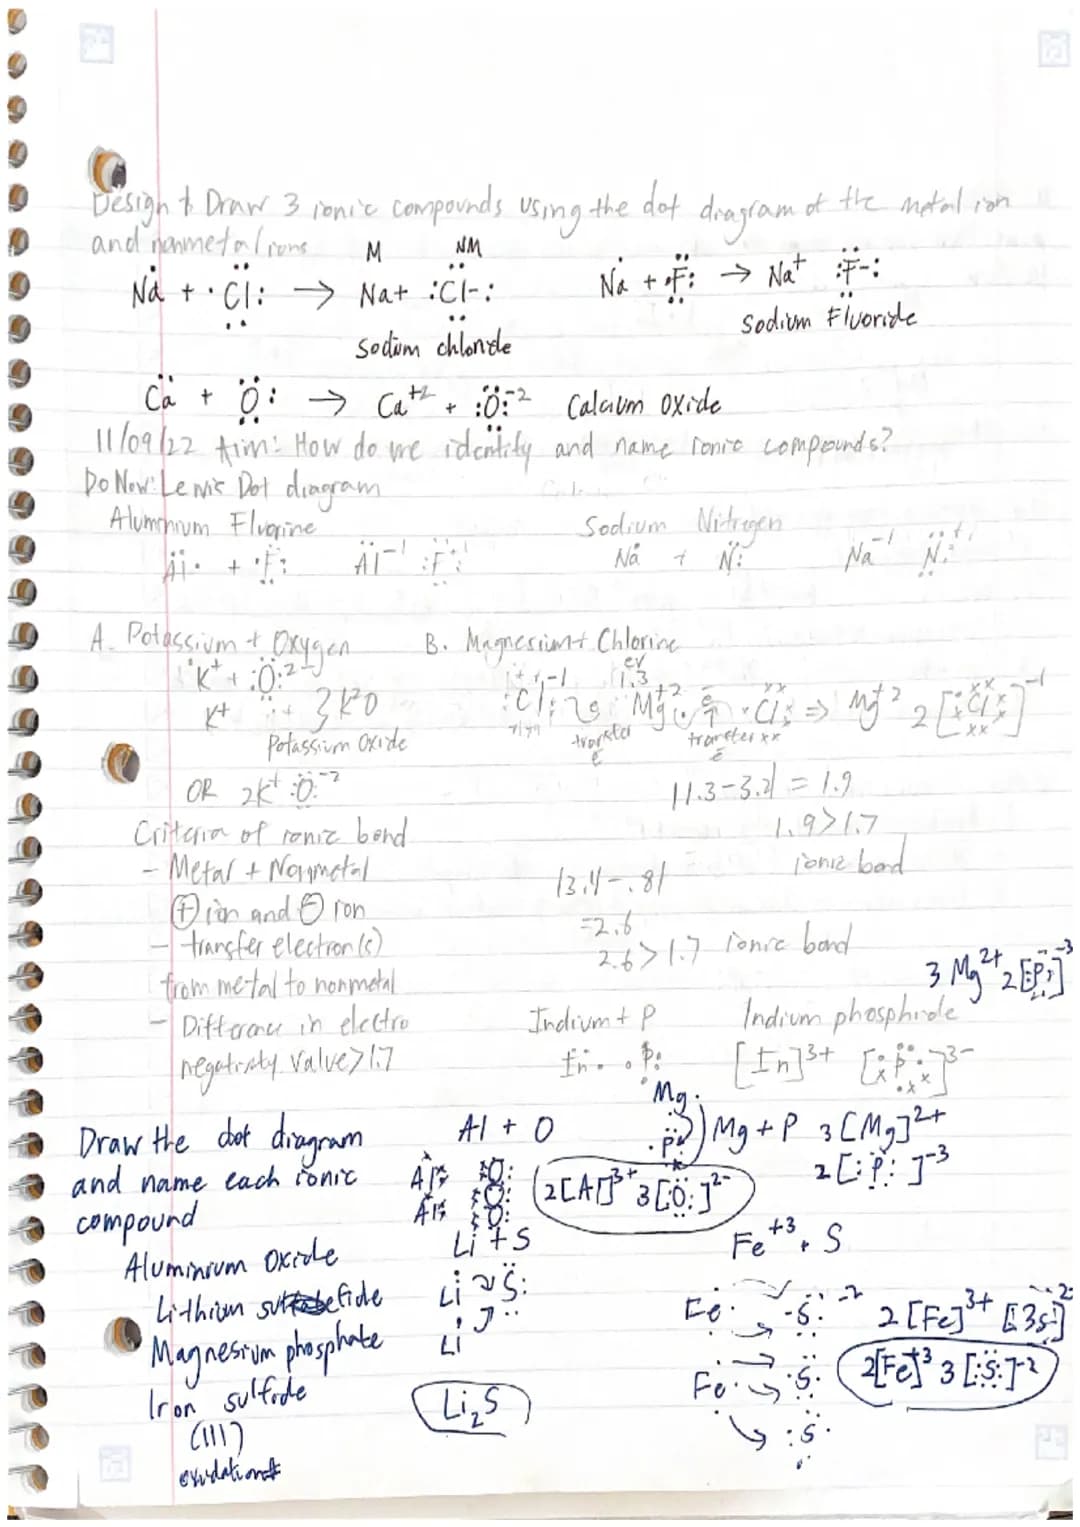 Design & Draw 3 ionic compounds using the dot diagram of the metal ion
and nonmetal ions
M NM
Na + Cl: → Na+ :Cl-: Na + F: → Na+ :F-:
Sodium chloride Sodium Fluoride
Ca + O: → Ca+2 + :O:-2 Calcium Oxide
11/09/22 Aim: How do we identify and name ionic compounds?
Do Now: Lewis Dot diagram
Aluminium Fluorine Sodium Nitrogen
Al + F: Al-1 :F:+1 Na + N: Na-1 N:+1
A. Potassium + Oxygen B. Magnesium + Chlorine
K+ + :O:2- :Cl: -1 1.3
K+ } K2O Mg+2 Cl ⇒ Mg+2 2[Cl]-1
Potassium Oxide transfer e transfer e
OR 2K+ :O:-2 |1.3-3.2| = 1.9
Criteria of ionic bond 1.9>1.7
- Metal + Nonmetal |3.4-.8| ionic bond
⊕ ion and ⊖ ion =2.6
- transfer electron(s) 2.6>1.7 ionic bond
from metal to nonmetal 3 Mg2+ 2[:P:]-3
- Difference in electro Indium + P Indium phosphide
negativity value>1.7 In. .P: [In]3+ [P]3-
Mg.
Draw the dot diagram Al + O .P Mg + P 3[Mg]2+
and name each ionic Al :O: 2[Al]3+ 3[:O:]2- 2[:P:]-3
compound Al :O:
:O:
Aluminium Oxide Li + S Fe+3, S
Lithium sulfide Li S: Fe. .S:-2 2[Fe]3+ [3S]2-
Magnesium phosphate Li Fe. .S. 2[Fe]+3 3[:S:]-2
Iron sulfide Li2S :S.
(III)
oxidation#